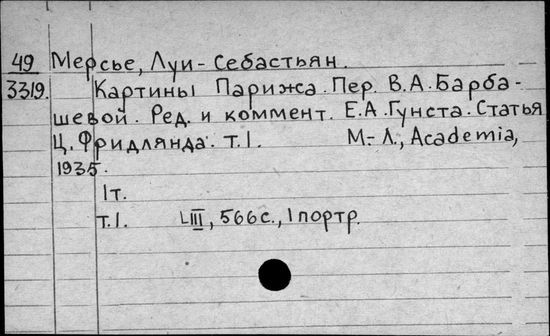 49 Мерсье, Луи-Себастьян.
3319. Картины Парижа. Пер. В.А.Барба-
шевой. Ред. и коммент. Е.А.Гунста. Статья
Ц. Фридлянда. т.1. М.-Л., Academia,
1935.
1т.
т.1. LIII, 566с., 1 портр.